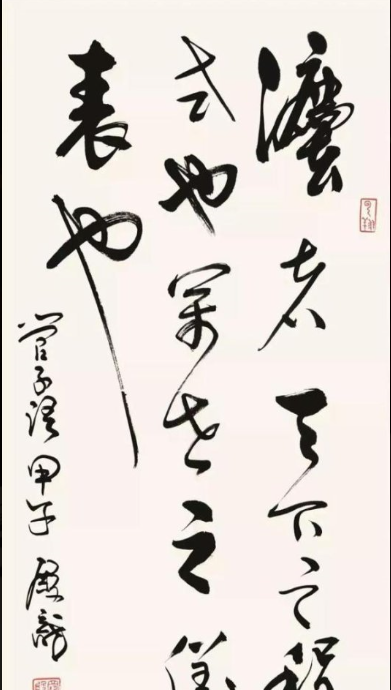 灋者天下之程
式也萬世之儀
表也
管子語甲午